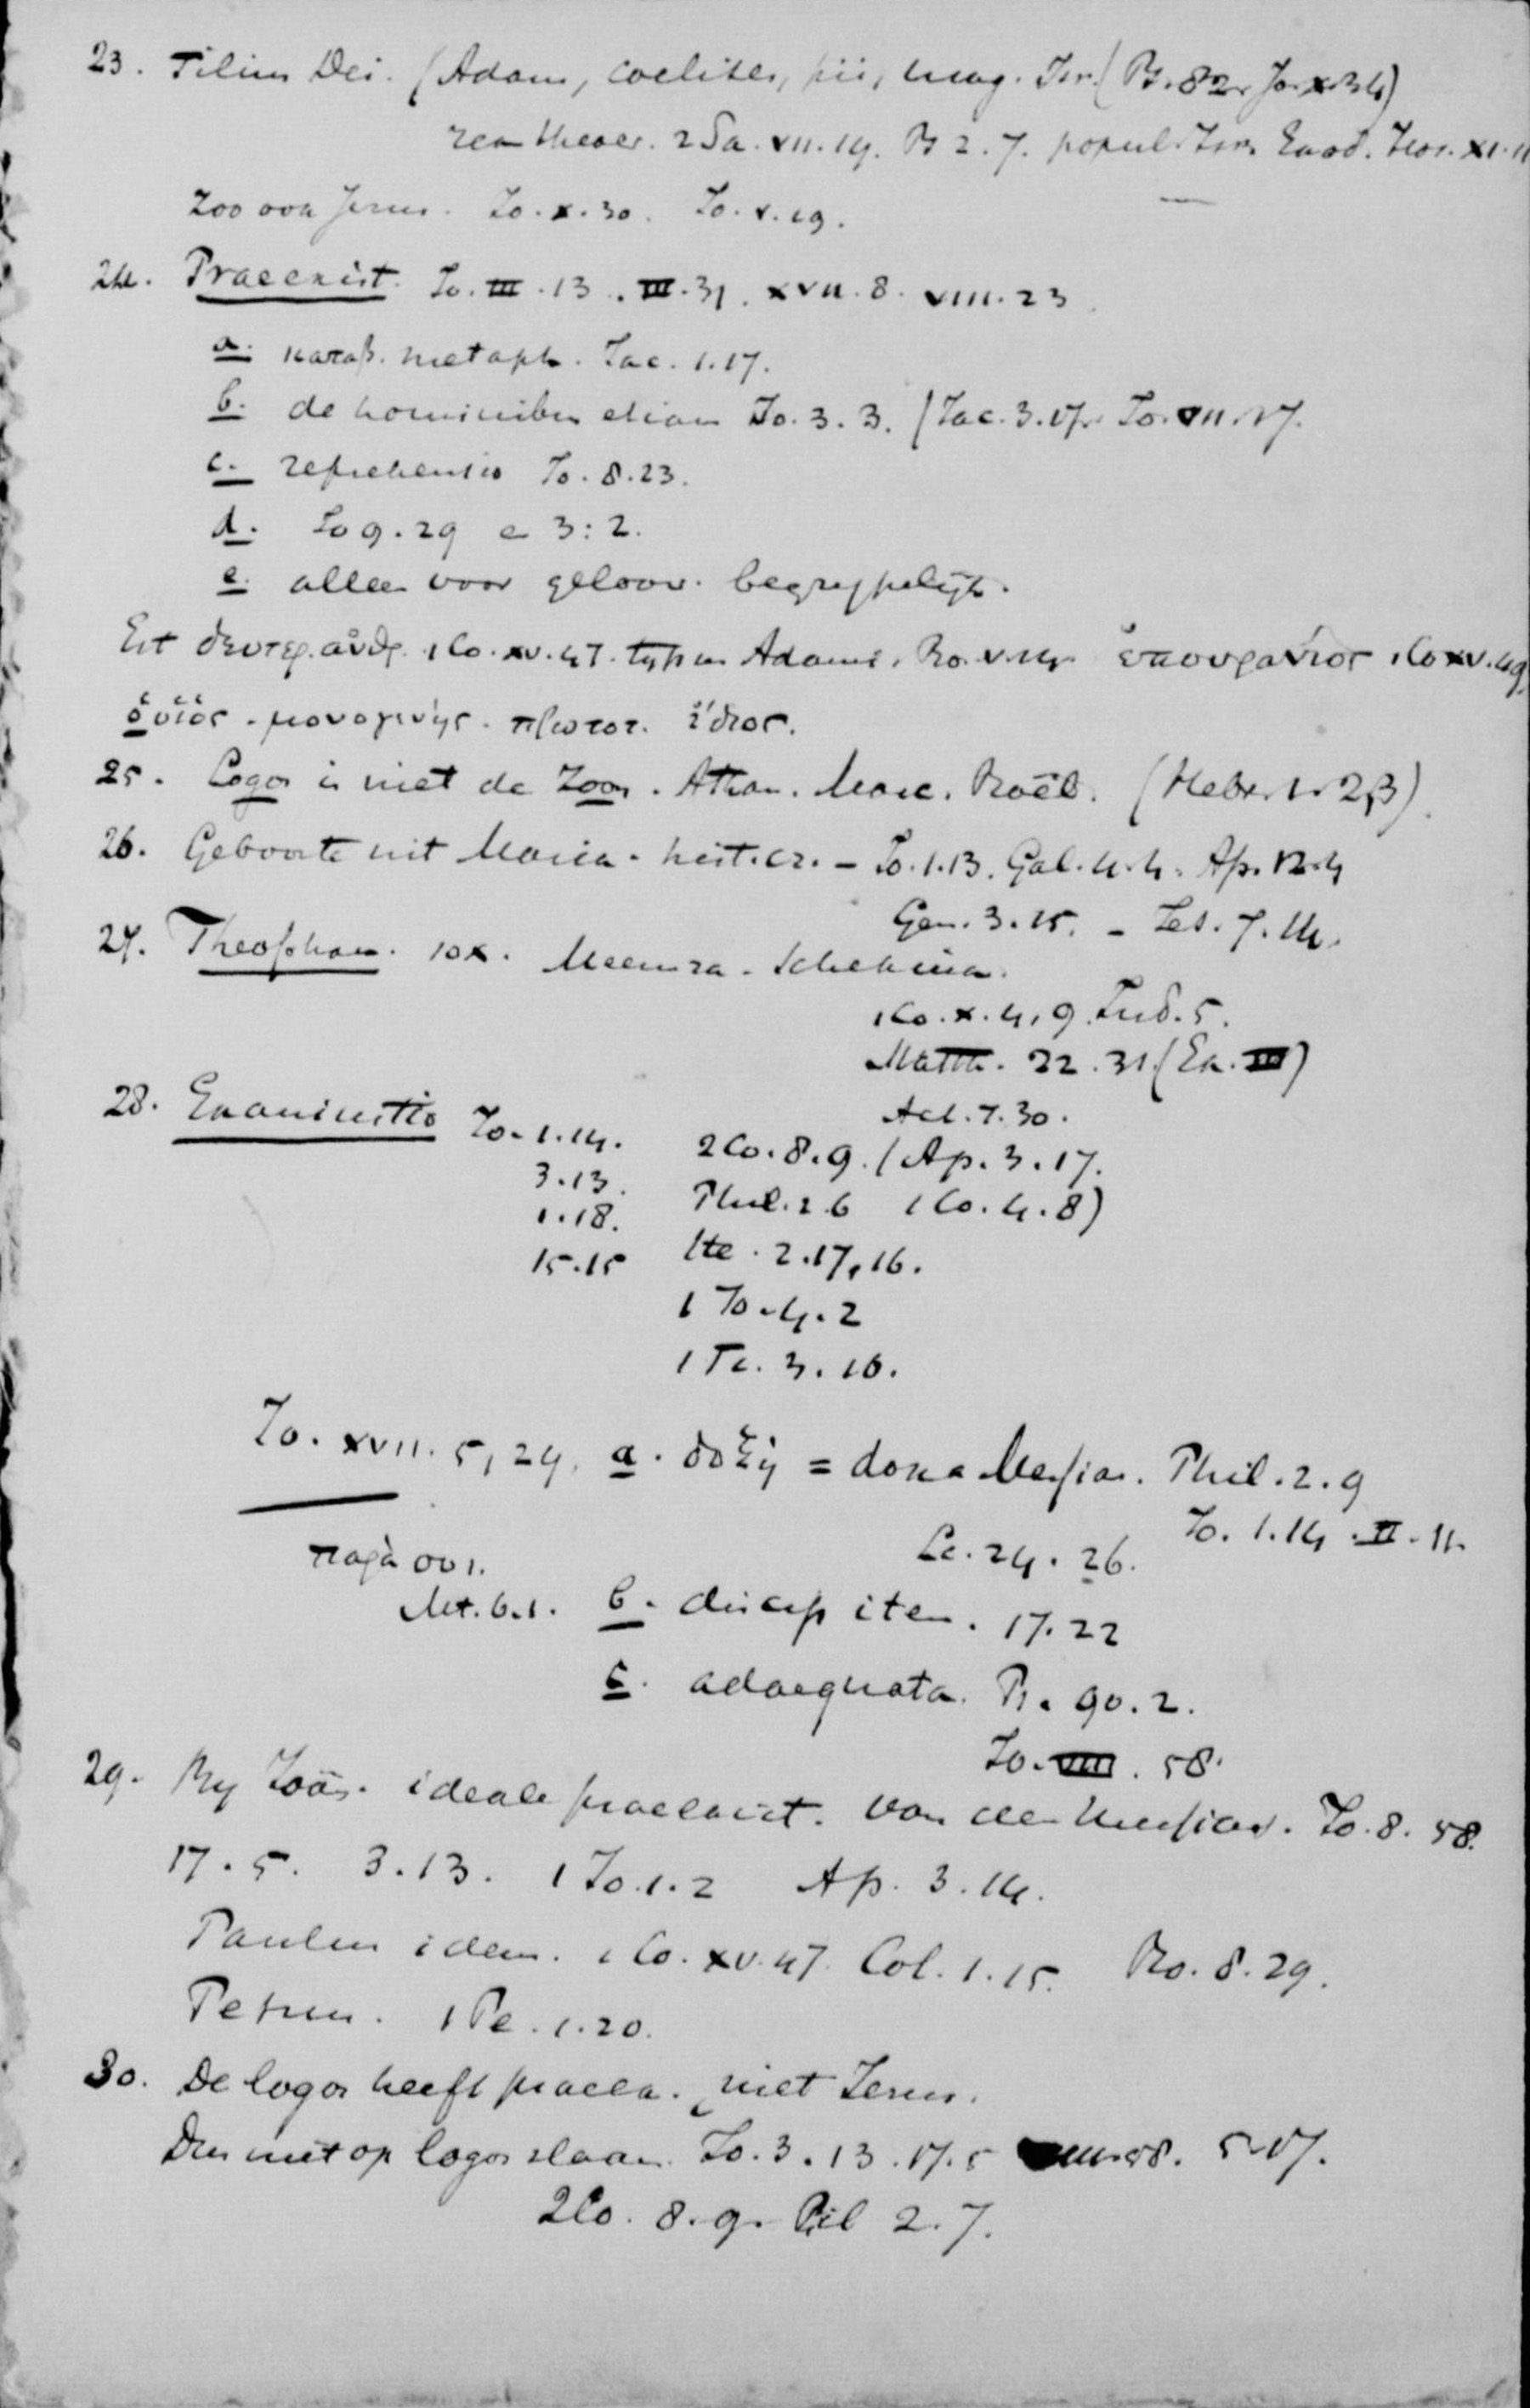 23. Filius Dei. (Adam, coelites, pii, mag. Isr. (Ps. 82. Jo. X. 34)
rex theocr. 2 Sa. VII. 14. Ps 2. 7. popul. Isr. Exod. Hos. XI. 11
Zoo ook Jesus. Jo. X. 30. Jo. V. 19.
24. Praeexist. Jo. III. 13. III. 31. XVII. 8. VIII. 23.
a. καταβ. metaph. Jac. 1. 17.
b. de hominibus etiam Jo. 3. 3. (Jac. 3. 17. Jo. VII. 17.
c. reprehensio Jo. 8. 23.
d. Jo 9. 29 c 3: 2.
e. alleen voor geloov. begrijpelijk.
Est δευτερ. ἀνθρ. 1 Co. XV. 47. typus Adami. Ro. V. 14. ὁ ἐπουράνιος 1 Co XV. 49.
ὁ υἱὸς. μονογενής. πρωτοτ. ἴδιος.
25. Logos is niet de Zoon. Athan. Marc. Roëll. (Hebr. 1. 2, 3).
26. Geboorte uit Maria. hist. cr. - Jo. 1. 13. Gal. 4. 4. Ap. 12. 4
Gen. 3. 15. - Jes. 7. 14.
27. Theophan. 10x. Meemra. Schekina.
1 Co. X. 4, 9. Jud. 5.
Matth. 22. 31 (Ex. III)
Act. 7. 30.
28. Exaninitio Jo. 1. 14. 2 Co. 8. 9. (Ap. 3. 17.
3. 13. Phil. 2 6 1 Co. 4. 8)
1. 18. He. 2. 17, 16.
15. 15
1 Jo. 4. 2
1 Ti. 3. 16.
Jo. XVII. 5, 24. a. δοξῃ = doxa Messiae. Phil. 2. 9
Jo. 1. 14. II. 11.
παρὰ σοι. Lc. 24. 26.
Mt. 6. 1. b. discip item. 17. 22
c. adaequata. Ps. 90. 2.
Jo. VIII. 58.
29. By Joän. ideale praeexist. van den Messias. Jo. 8. 58.
17. 5. 3. 13. 1 Jo. 1. 2 Ap. 3. 14.
Paulus idem. 1 Co. XV. 47. Col. 1. 15. Ro. 8. 29.
Petrus. 1 Pe. 1. 20.
30. De logos heeft praeex. niet Jesus.
Dus niet op logos slaan. Jo. 3. 13. 17. 5 VIII. 58. 5. 17.
2 Co. 8. 9. Pil 2. 7.